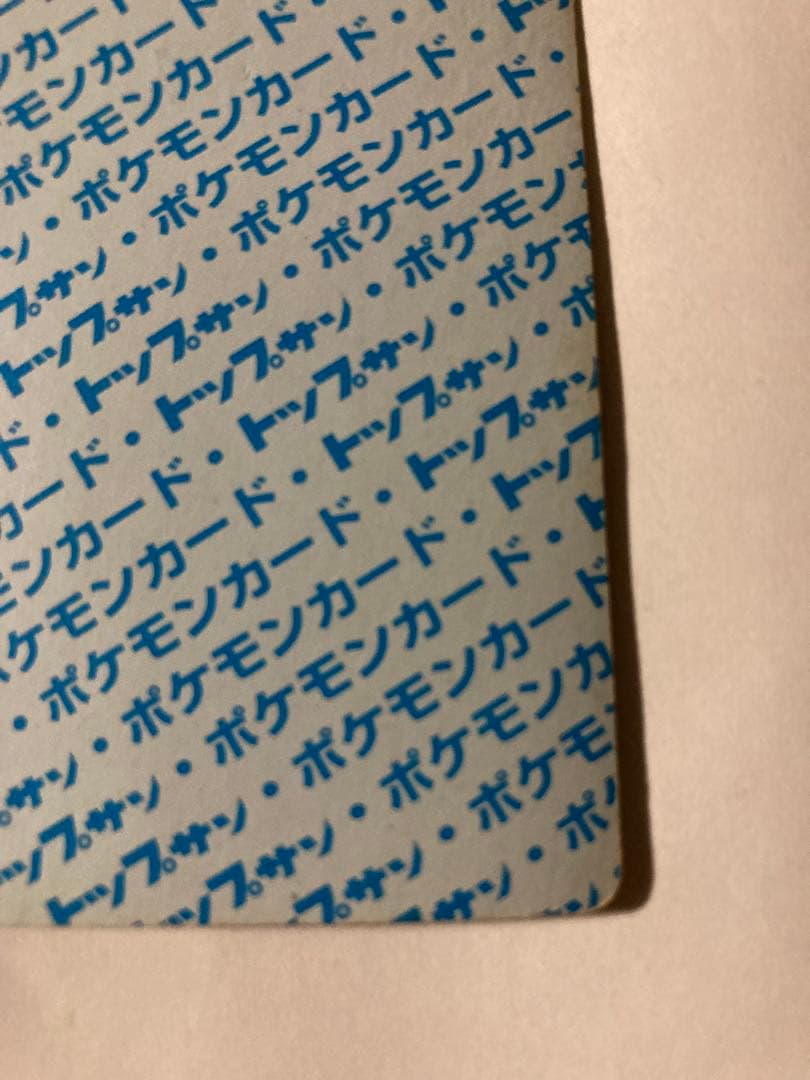 ンカード
モンカード・
ポケモンカード・ト
ン・ポケモンカード・トッ
プサン・ポケモンカード・
トップサン・ポケモンカー
ド・トップサン・ポケモン
カード・トップサン・ポケモ
モンカード・トップサン・ポ
ケモンカード・トップサン
・ポケモンカード・トップ
プサン・ポケモンカード・ト
ップサン・ポケモンカード
トップサン・ポケモンカ
ップサン・ポケモ
プサン・ポ